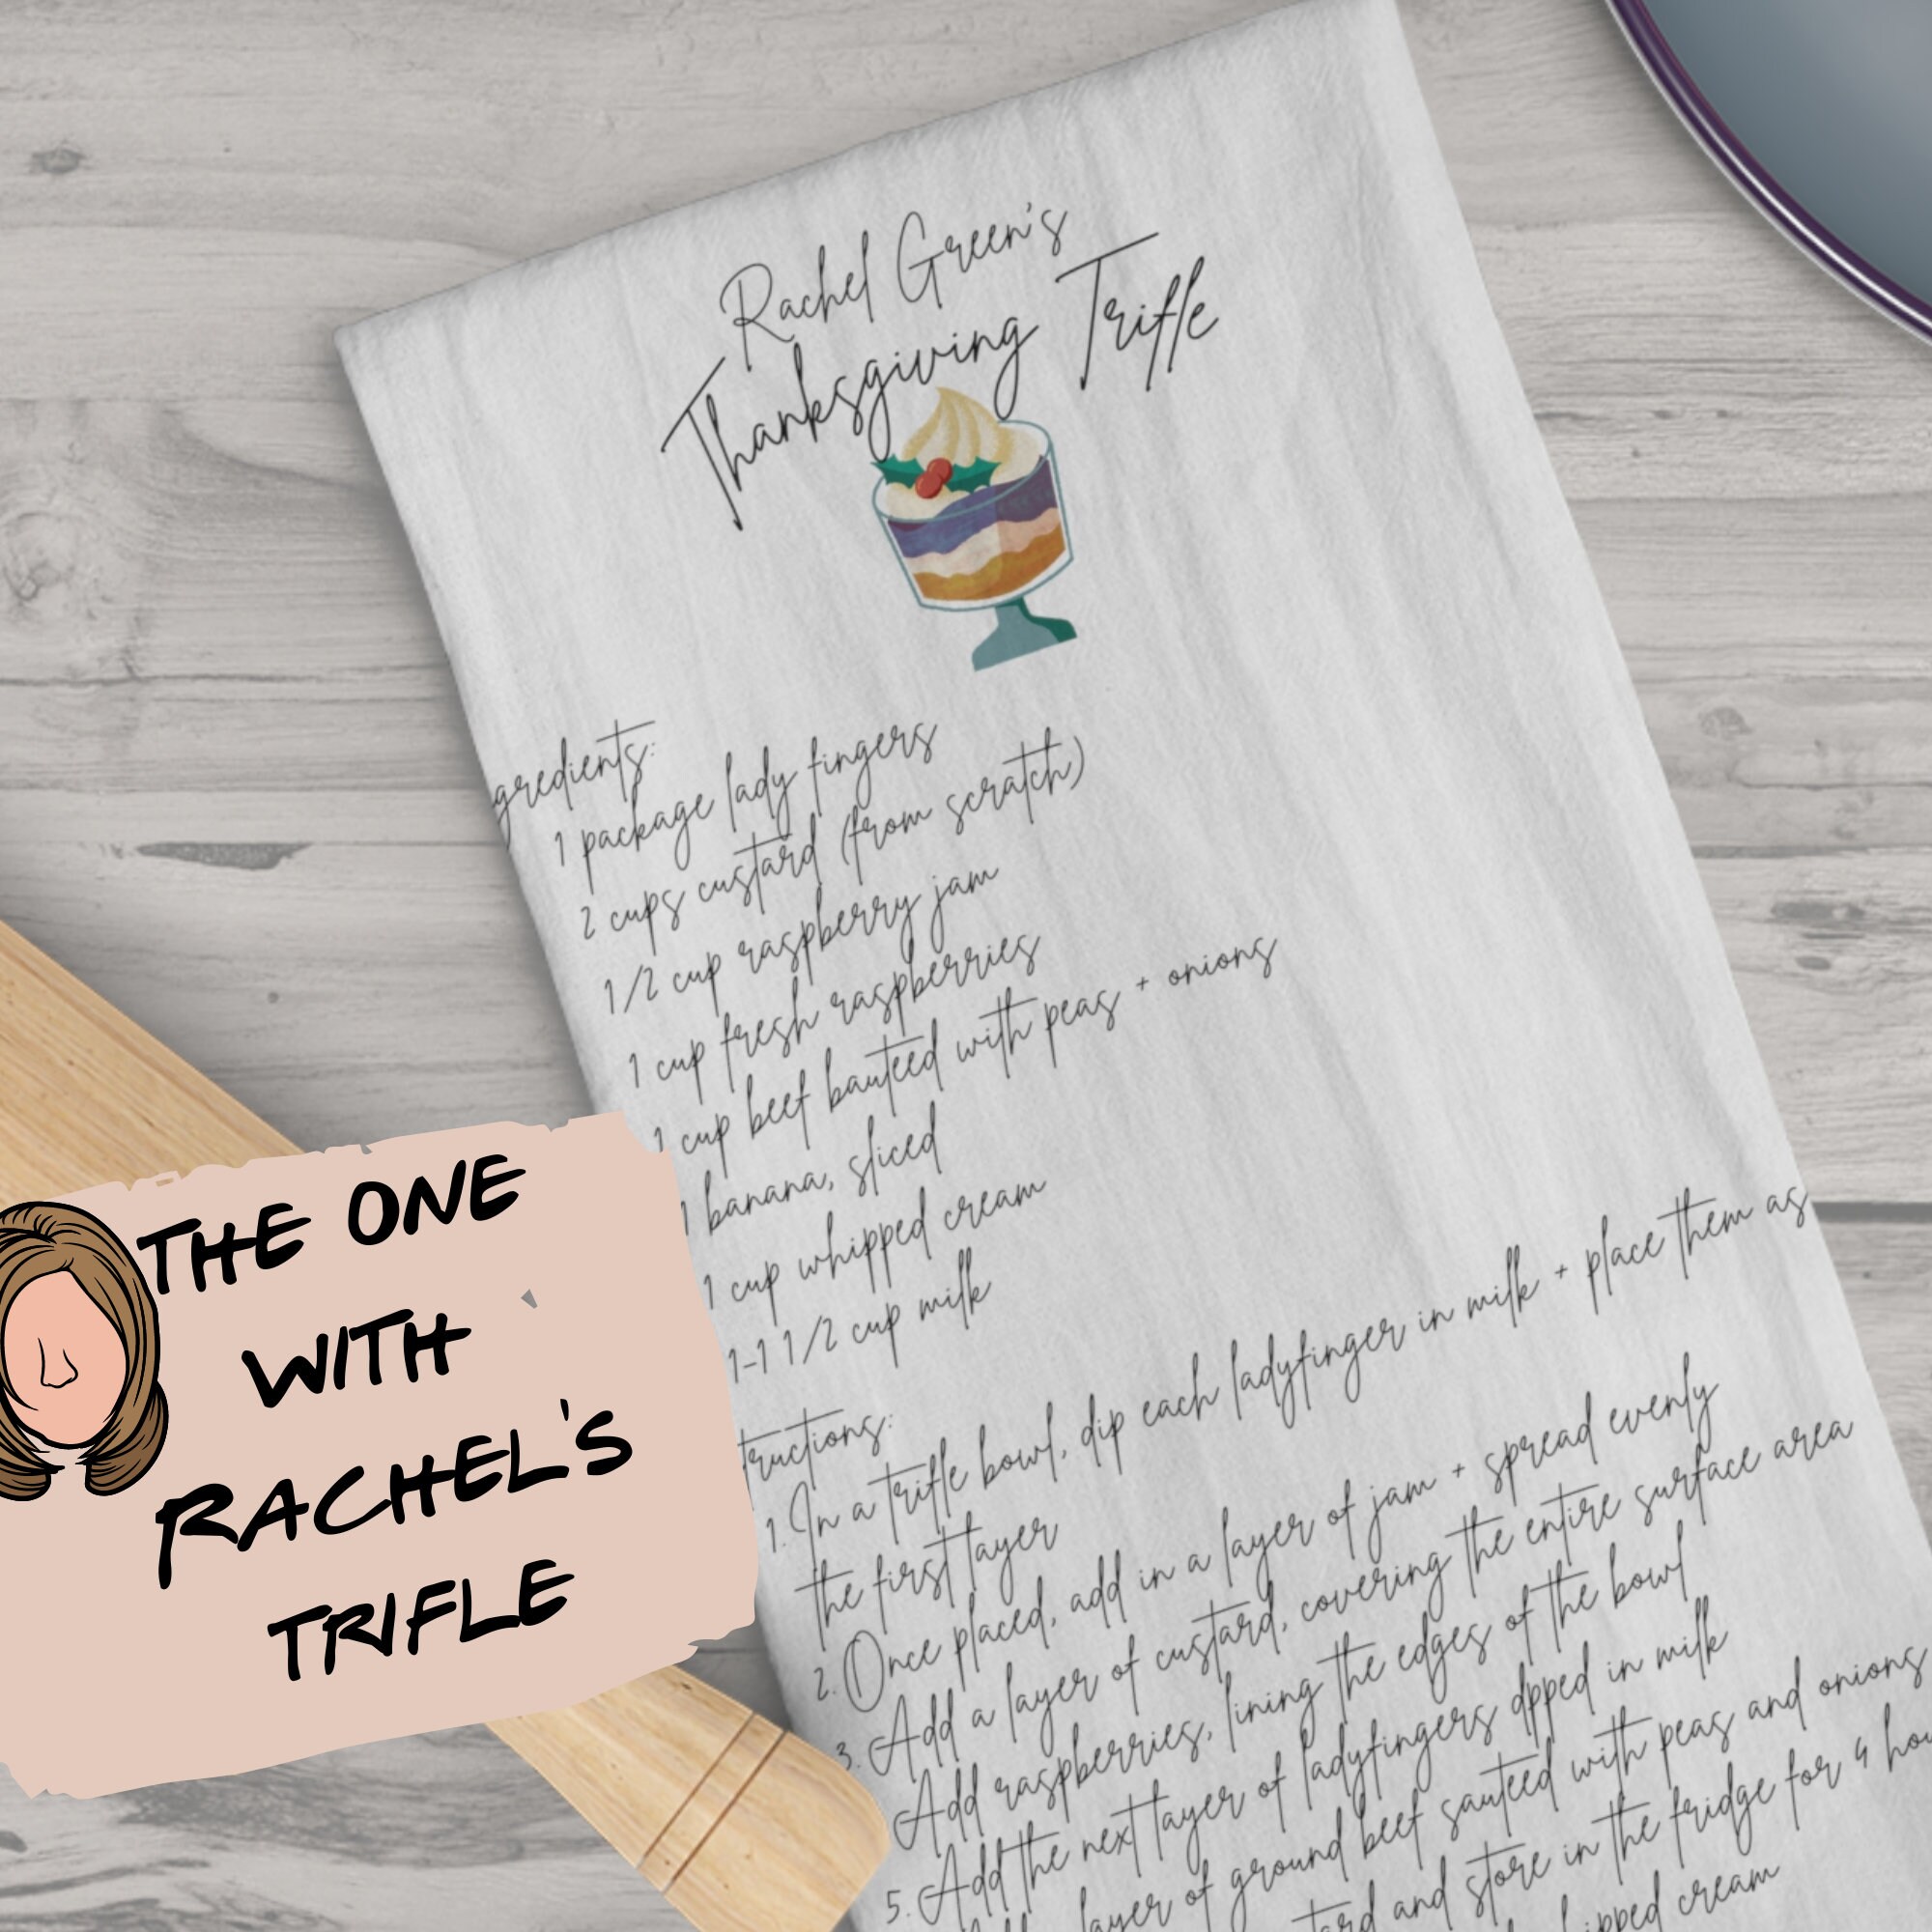 Rachel Green's
Thanksgiving Trifle
gredients:
1 package lady fingers
2 cups custard (from scratch)
1/2 cup raspberry jam
1 cup fresh raspberries
1 cup beef bauteed with peas + onions
1 banana, sliced
1 cup whipped cream
1-1 1/2 cup milk
tructions:
1. In a trifle bowl, dip each ladyfinger in milk + place them as
the first layer
2. Once placed, add in a layer of jam + spread evenly
3. Add a layer of custard, covering the entire surface area
Add raspberries, lining the edges of the bowl
5. Add the next layer of ladyfingers dpped in milk
layer of ground beef sauteed with peas and onions
and store in the fridge for 4 hou
cream
THE ONE
WITH
RACHEL'S
TRIFLE